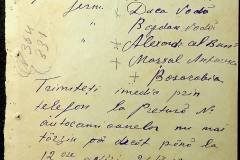 Germ. Duca Vodă
" Bogdan Vodă
+ Alexandru cel Bun
+ Maresal Antonescu
+ Basarabia
384
831
Trimiteți imediat prin
telefon la Pretură No
autocamioanelor nu mai
târziu decât până la
12 ore